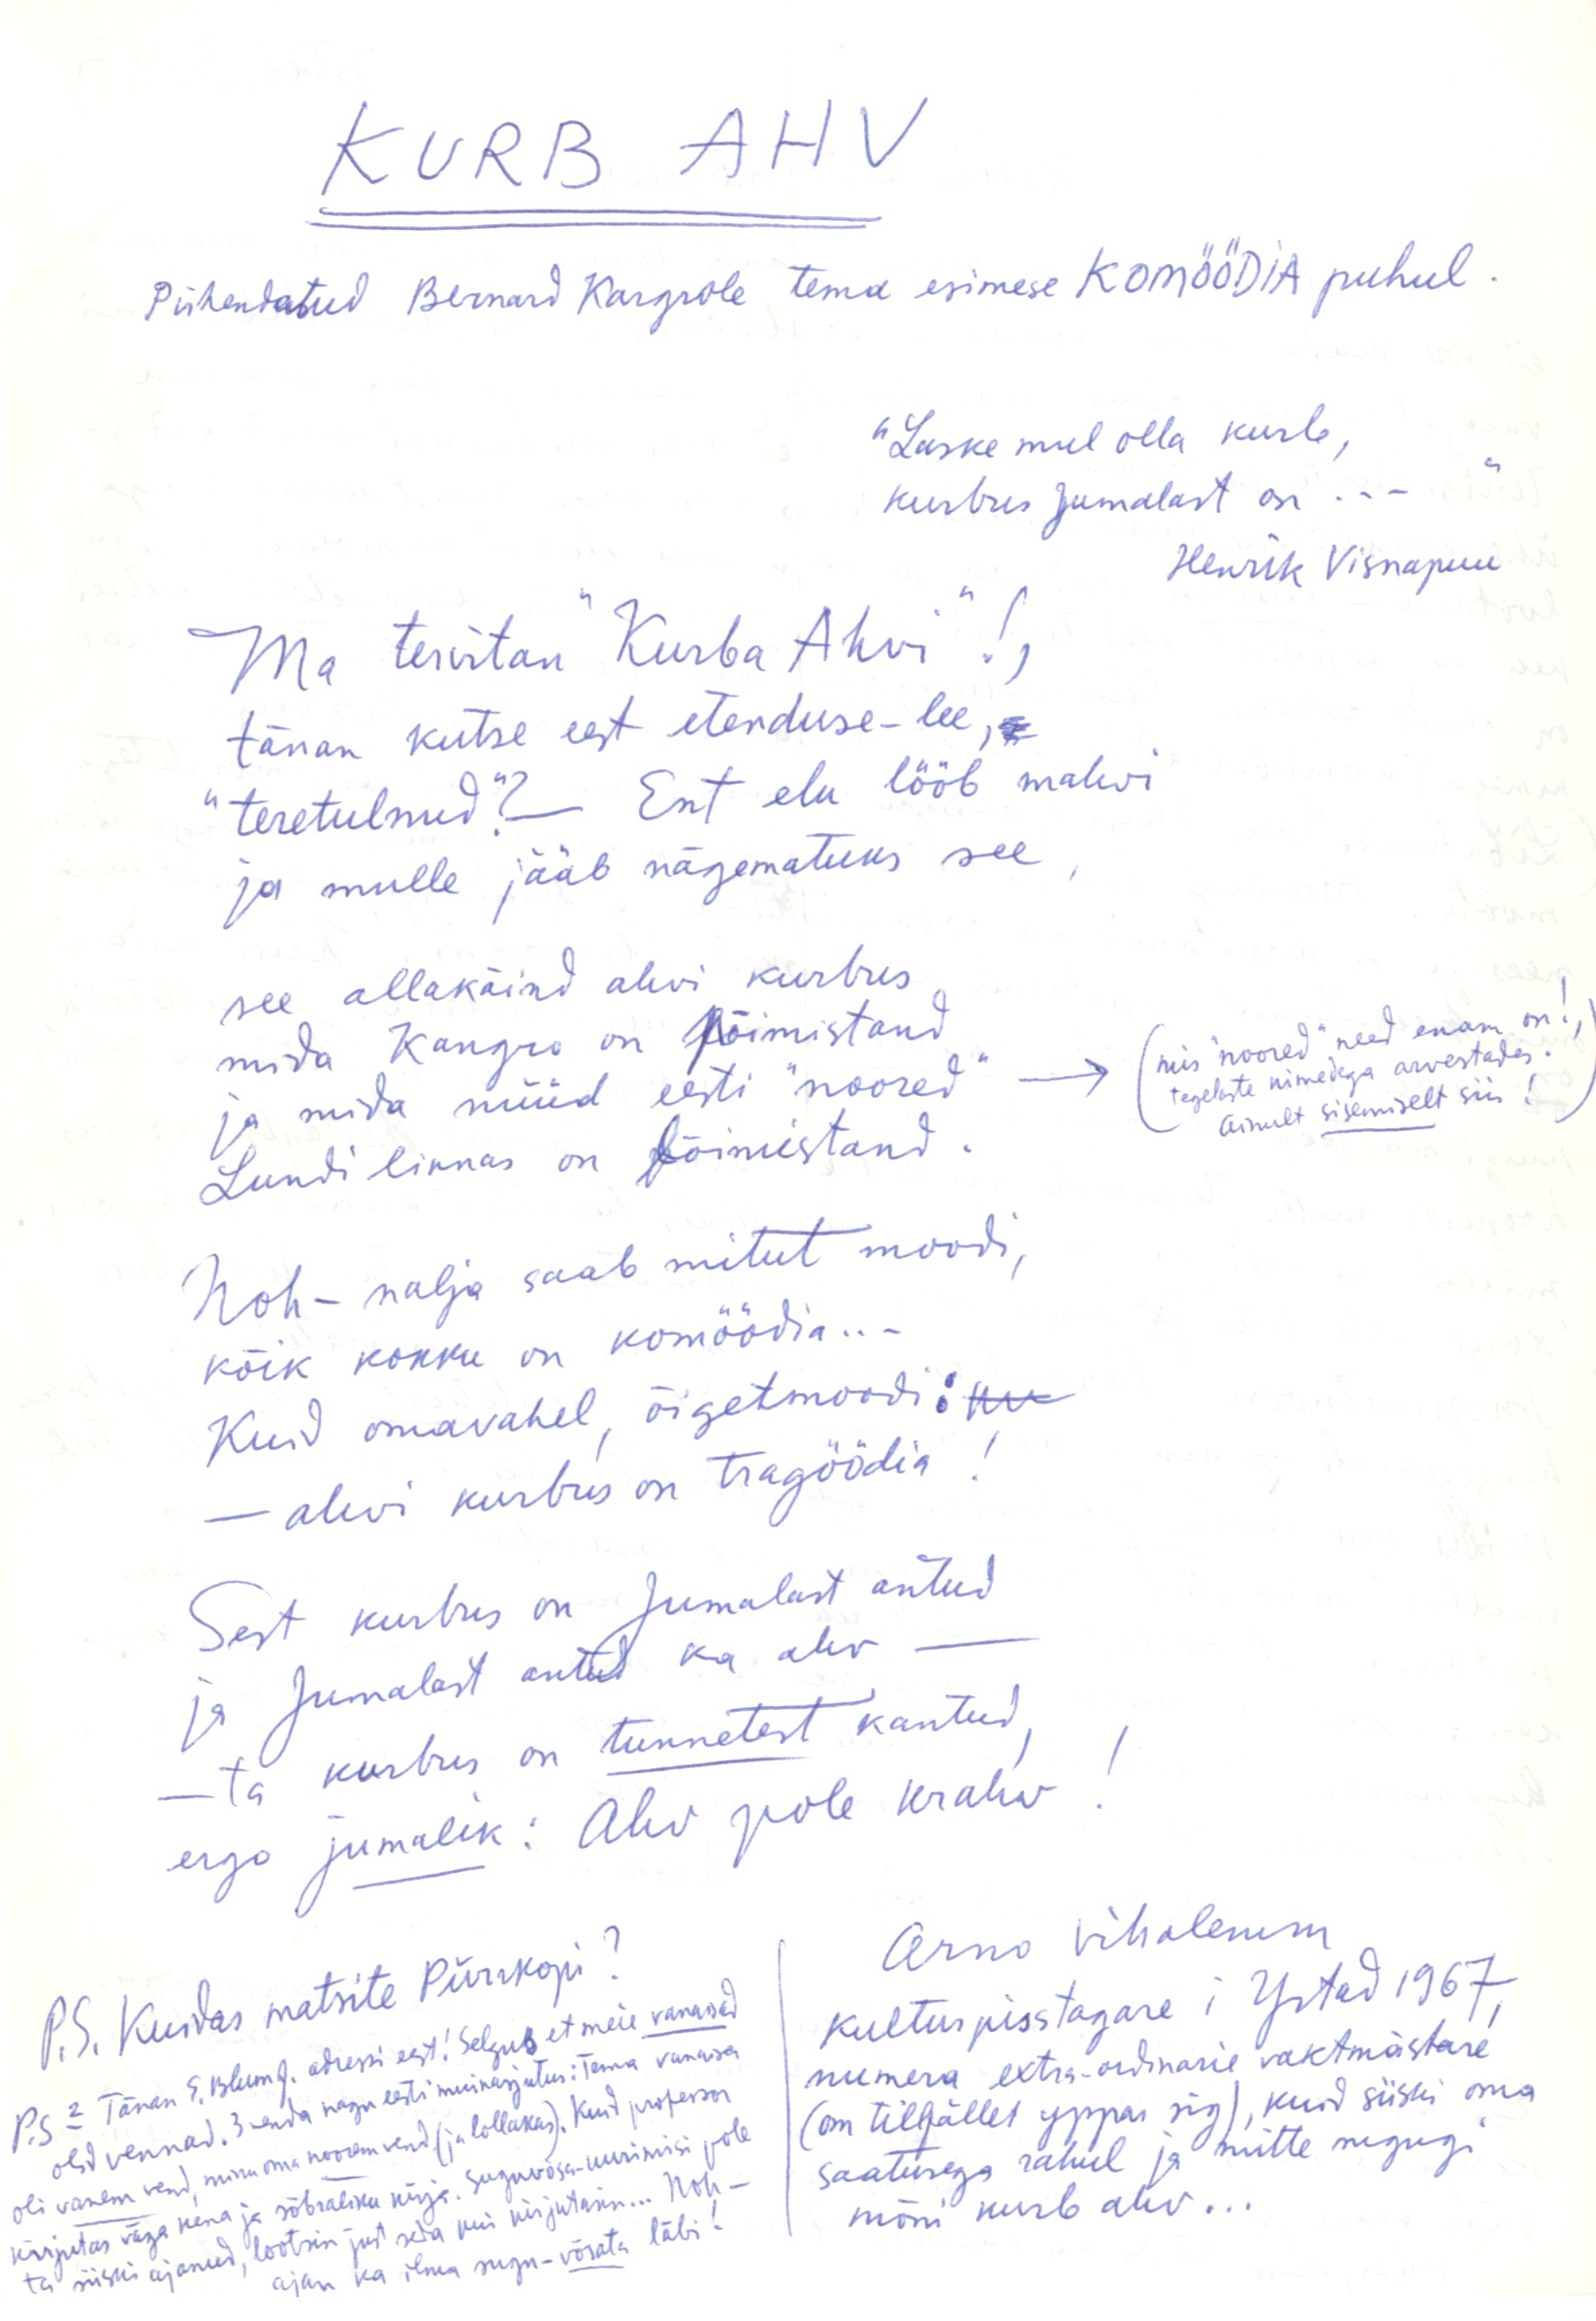 KURB AHV
Pühendatud Bernard Kangrole tema esimese KOMÖÖDIA puhul.
"Laske mul olla kurb,
kurbus Jumalast on ..."
Henrik Visnapuu
Ma tervitan "Kurba Ahvi"!,
tänan kutse eest etenduse-lee,
"teretulnud"? — Ent elu lööb mahvi
ja mulle jääb nägematuks see,
see allakäind ahvi kurbus
mida Kangro on põimistand
ja mida nüüd eesti "noored" →
Lundi linnas on lõimistand.
(mis "noored" need enam on!,
tegelaste nimedega arvestades.
Ainult sisemiselt siis!)
Noh – nalja saab mitut moodi,
kõik kokku on komöödia...
Kuid omavahel, õigetmoodi:
— ahvi kurbus on tragöödia!
Sest kurbus on Jumalast antud
ja Jumalast antud ka ahv —
— ta kurbus on tunnetest kantud,
ergo jumalik: Ahv pole krahv!
Arno Vihalemm
kulturpisstagare i Ystad 1967,
numera extra-ordinarie vaktmästare
(om tillfället yppar sig), kuid siiski oma
saatusega rahul ja mitte sugugi
mõni kurb ahv...
P.S. Kuidas matsite Piirikopi?
P.S 2 Tänan E. Blumf. adressi eest! Selgub et meie vanaisad
olid vennad. 3 venda nagu eesti muinasjutus: Tema vanaisa
oli vanem vend, minu oma noorem vend (ja lollakas). Kuid professor
kirjutas väga kena ja sõbraliku kirja. Suguvõsa-uurimisi pole
ta siiski ajanud, lootsin just seda kui kirjutasin... Noh –
ajan ka ilma sugu-võsata läbi!